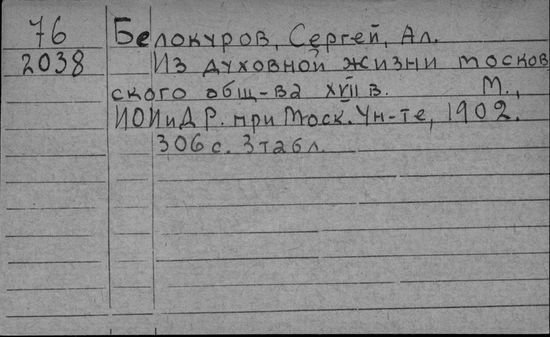 76 Белокуров, Сергей, Ал.
2038 Из духовной жизни москов
ского общ-ва XVII в. М.,
ИОИиДР. при Моск. Ун-те, 1902.
306 с. 3 табл.